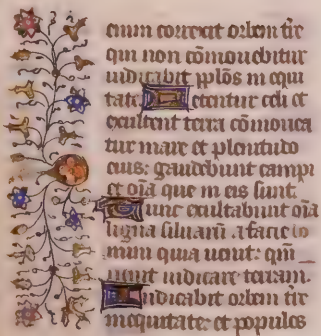 enim correxit orbem tr̄e
qui non cōmouebitur
iudicabit pplōs in equi
tate. Letentur celi et
exultent terra cōmouea
tur mare et plenitudo
eius: gaudebunt campi
et oīa que in eis sunt.
Tunc exultabunt oīa
ligna siluarū a facie do
mini quia uenit: qm̄
uenit iudicare terram.
Iudicabit orbem tr̄e
in equitate: et populos